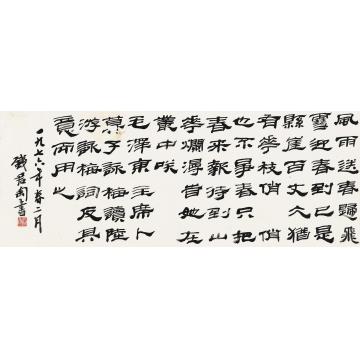 風雨送春歸飛
雪迎春到已是
縣崖百丈仌猶
有華枝俏俏
也不爭春只把
春來報待到山
華爛漫旹她在
叢中咲
毛澤東主席卜
算子詠梅讀陸
游詠梅詞反其
意而用之
一九七六年春二月
錢君匋書